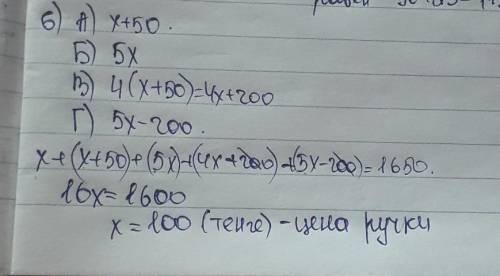 6) А) x+50.
Б) 5x
В) 4(x+50)=4x+200
Г) 5x-200.
x+(x+50)+(5x)+(4x+200)+(5x-200)=1650.
16x=1600
x=100 (тенге) - цена ручки